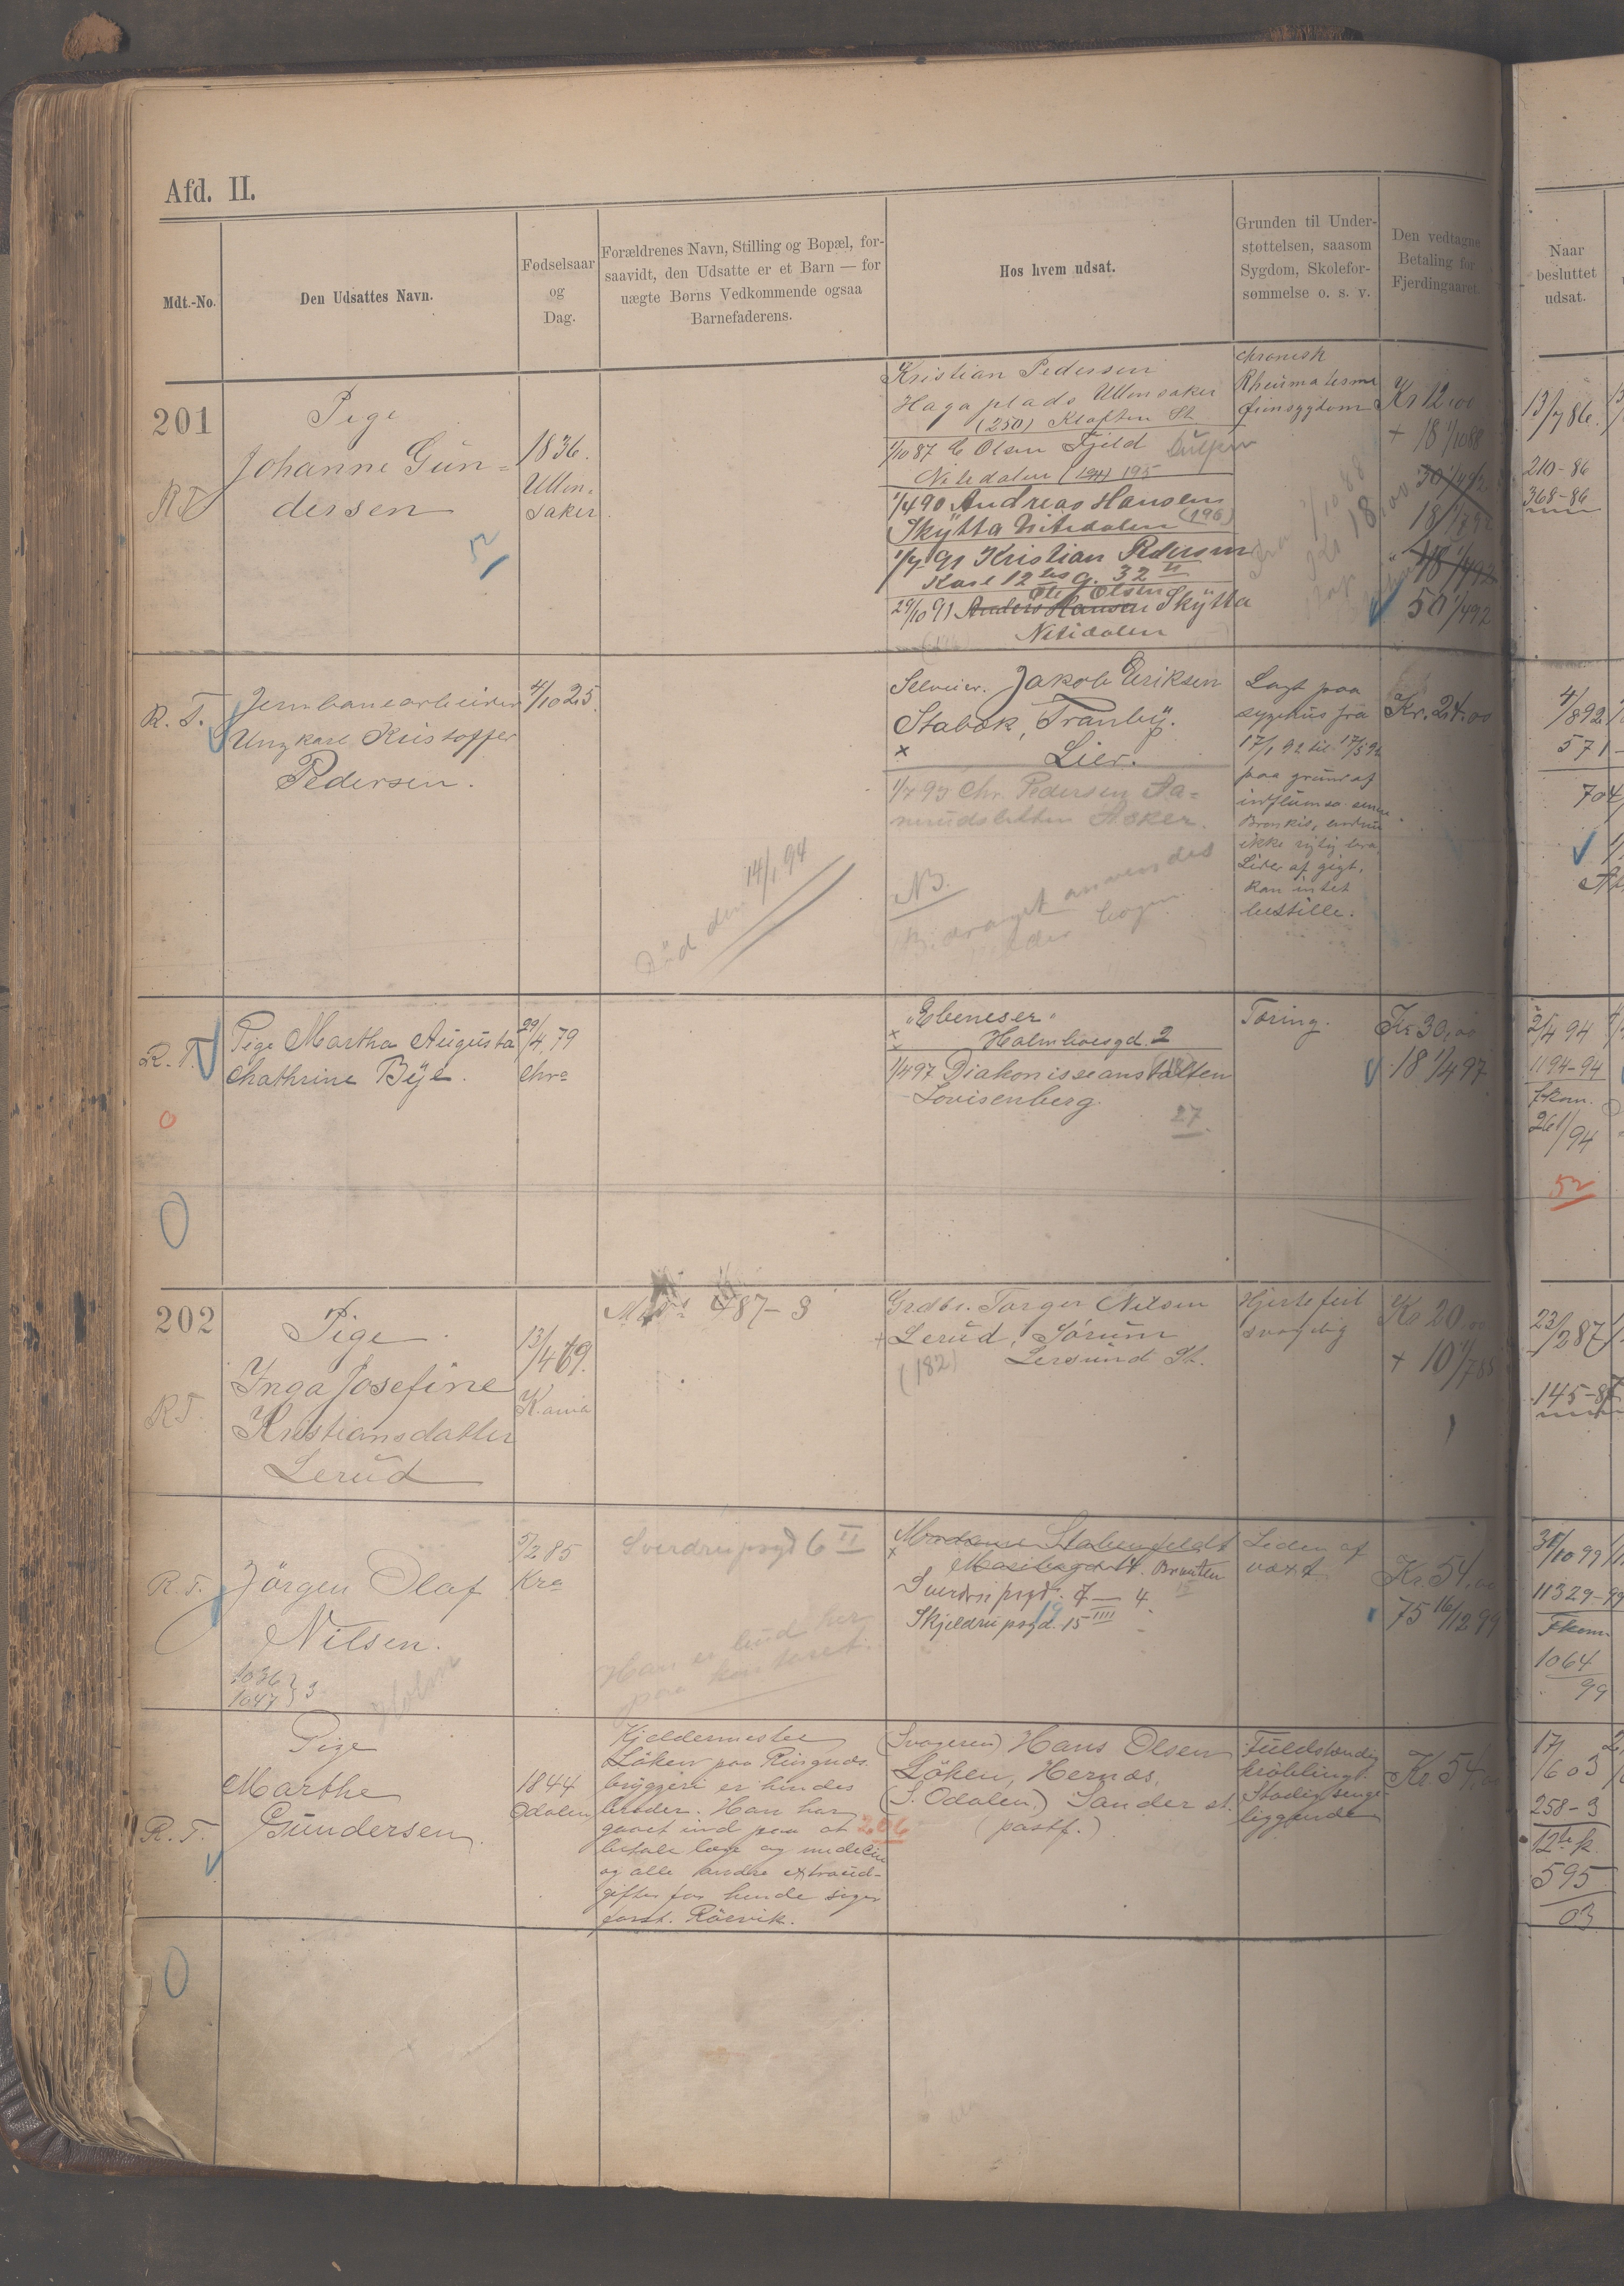 Afd. II.
Mdt.-No.
Den Udsattes Navn.
Fødselsaar
og
Dag.
Forældrenes Navn, Stilling og Bopæl, for-
saavidt, den Udsatte er et Barn — for
uægte Børns Vedkommende ogsaa
Barnefaderens.
Hos hvem udsat.
Grunden til Under-
støttelsen, saasom
Sygdom, Skolefor-
sømmelse o. s. v.
Den vedtagne
Betaling for
Fjerdingaaret.
Naar
besluttet
udsat.
201
R.T.
Pige
Johanne Gün-
dersen
1836.
Ullen-
saker
Kristian Pedersen
Haga plads Ullensaker
(250) Kløften St.
1/10 87 E Olsen Fjeld
Nitedalen (194) 195
1/4 90 Andreas Hansen
Skÿtta Nitedalen (196)
1/7 91 Kristian Pedersen
Karl 12 tes g. 32 II
Ole Olsen
29/10 91 Anders Hansen Skÿtta
Nitedalen
chronisk
Rheumatisme
Kr 12,00
+ 18 1/10 88
30 1/4 92
18 1/7 92
48 1/4 92
50 1/4 92
13/7 86.
210-86
368-86
R. T.
Jernbanearbeider
Ungkarl Kristoffer
Pedersen.
4/10 25.
Selveier. Jakob Eriksen
Stabæk, Tranbÿ.
Lier.
1/4 93 Chr. Pedersen
Asker.
NB.
Bidraget anvendes
Död den 14/1 94
Lagt paa
sygehus fra
17/1 92 til 17/5 92
paa grund af
ikke rigtig bra
Lider af gigt,
kan intet
bestille.
Kr. 24.00
4/8 92
571-
704
R. T.
Pige Martha Augusta
Chathrine Bÿe.
29/4 79
Chra
"Ebeneser"
Holmboesgd. 2
1/4 97 Diakonisseanstalten
Lovisenberg.
27
Tæring.
Kr 30,00
18 1/4 97
2/4 94
1194-94
fkom.
26 1/94
52
0
202
R.T.
Pige
Inga Josefine
Kristiansdatter
Lerüd
13/4 69.
K.ania
487-3
Grdbr. Torger Nilsen
Lerüd, Sörüm
(182) Lersund St.
Hjertefeil
svagelig
Kr 20.00
+ 10 1/7 88
23/2 87
145-87
R. T.
Jörgen Olaf
Nilsen.
1036
1047 } 3
Holm
5/2 85
Kra
Sverdrupsgd 6 II
Han er bud her
paa kontoret.
Madame Stabenfeldt
Sverdrupsgd. 7 — 4.
Skjeldrupsgd. 15 IIII
Leden af
vært
Kr. 54,00
75 16/12 99
31/10 99
11329-99
Fkom
1064
99
R. T.
Pige
Marthe
Gündersen
1844
Odalen
Kjeldermester
Löken paa Ringnæs
bryggeri er hendes
broder. Han har
gaaet ind paa at
betale læge og medecin
og alle andre extraud-
gifter for hende siger
forst. Röervik.
206
(Svogeren) Hans Olsen
Löken, Hernæs,
(S. Odalen) Sander st.
(postf.)
Fuldstændig
krøbling.
Stadig senge-
liggende
Kr. 54,00
17/6 03
258-3
12te k.
595
03
0